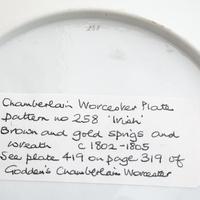 258
Chamberlain Worcester Plate
pattern no 258 'Irish'
Brown and gold sprigs and
wreath c 1802-1805
See plate 419 on page 319 of
Godden's Chamberlain Worcester